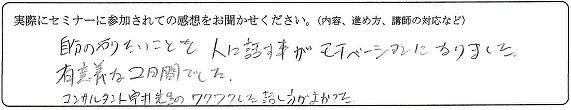 実際にセミナーに参加されての感想をお聞かせください。(内容、進め方、講師の対応など)
自分のやりたいことを 人に話す事が モチベーションになりました。
有意義な2日間でした。
コンサルタント 先生の ワクワクした 話し方がよかった